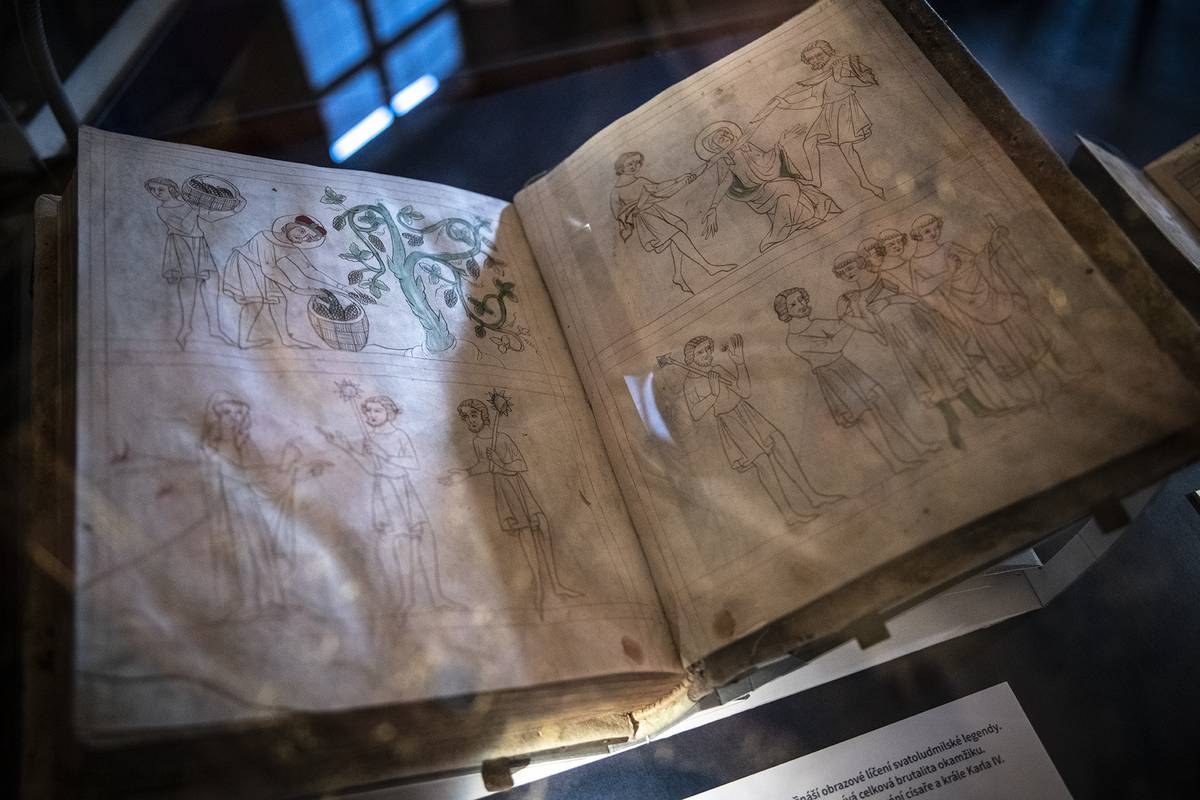 obrazové líčení svatoludmilské legendy.
celková brutalita okamžiku.
císaře a krále Karla IV.